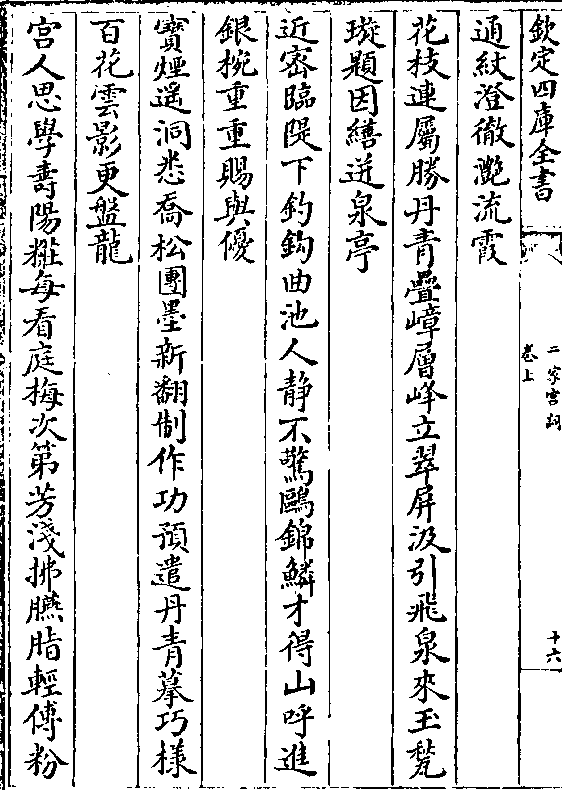 欽定四庫全書
二家宮詞
卷上
十六
通紋澄徹灔流霞
花枝連屬勝丹青疊嶂層峰立翠屏汲引飛泉來玉甃
璇題因繕迸泉亭
近密臨隄下釣鈎曲池人静不驚鷗錦鱗才得山呼進
銀椀重重賜與優
寳煙遥洞悉喬松團墨新翻制作功預遣丹青摹巧様
百花雲影更盤龍
宫人思學壽陽粧每看庭梅次第芳淺拂臙脂輕傅粉